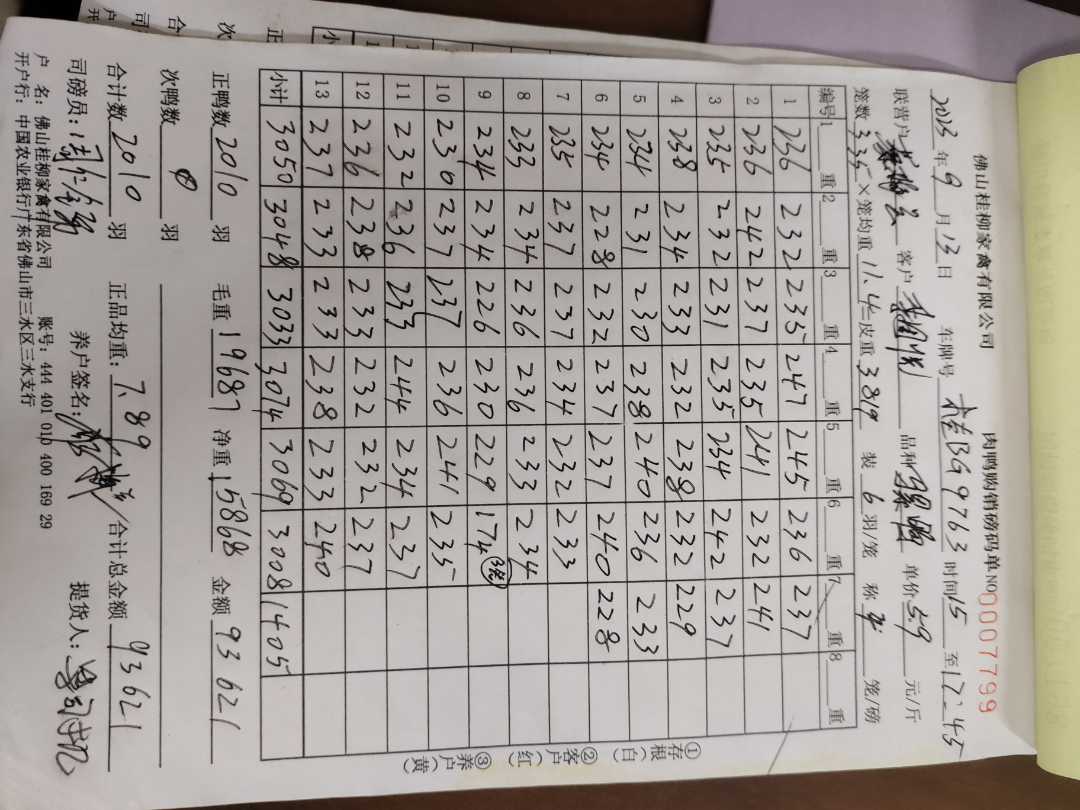 佛山桂柳家禽有限公司 肉鸭购销磅码单 NO 0007799
2025年9月13日 车牌号 桂BG9763 时间15至17:45
联营户 客户 品种 单价5.9元/斤
笼数335×笼均重11.4=皮重3819 装6羽/笼 称 笼/磅
编号 1 重 2 重 3 重 4 重 5 重 6 重 7 重 8 重
1 236 232 235 247 245 236 237
2 236 242 237 235 241 232 241
3 235 232 231 235 234 242 237
4 238 234 233 232 238 232 229
5 234 231 230 238 240 236 233
6 234 228 232 237 237 240 228
7 235 237 237 234 232 233
8 233 234 236 236 233 234
9 234 234 226 230 229 174
10 230 237 237 236 241 235
11 232 236 233 244 234 237
12 236 238 233 232 232 237
13 237 233 233 238 233 240
小计 3050 3048 3033 3074 3069 3008 1405
正鸭数2010羽 毛重19687 净重15868 金额93621
次鸭数 0 羽
合计数2010羽 正品均重:7.89 合计总金额93621
司磅员: 养户签名: 提货人:
户 名:佛山桂柳家禽有限公司 账号:444 401 010 400 169 29
开户行:中国农业银行广东省佛山市三水区三水支行
①存根(白) ②客户(红) ③养户(黄)
次
合
司
户
开
正
小